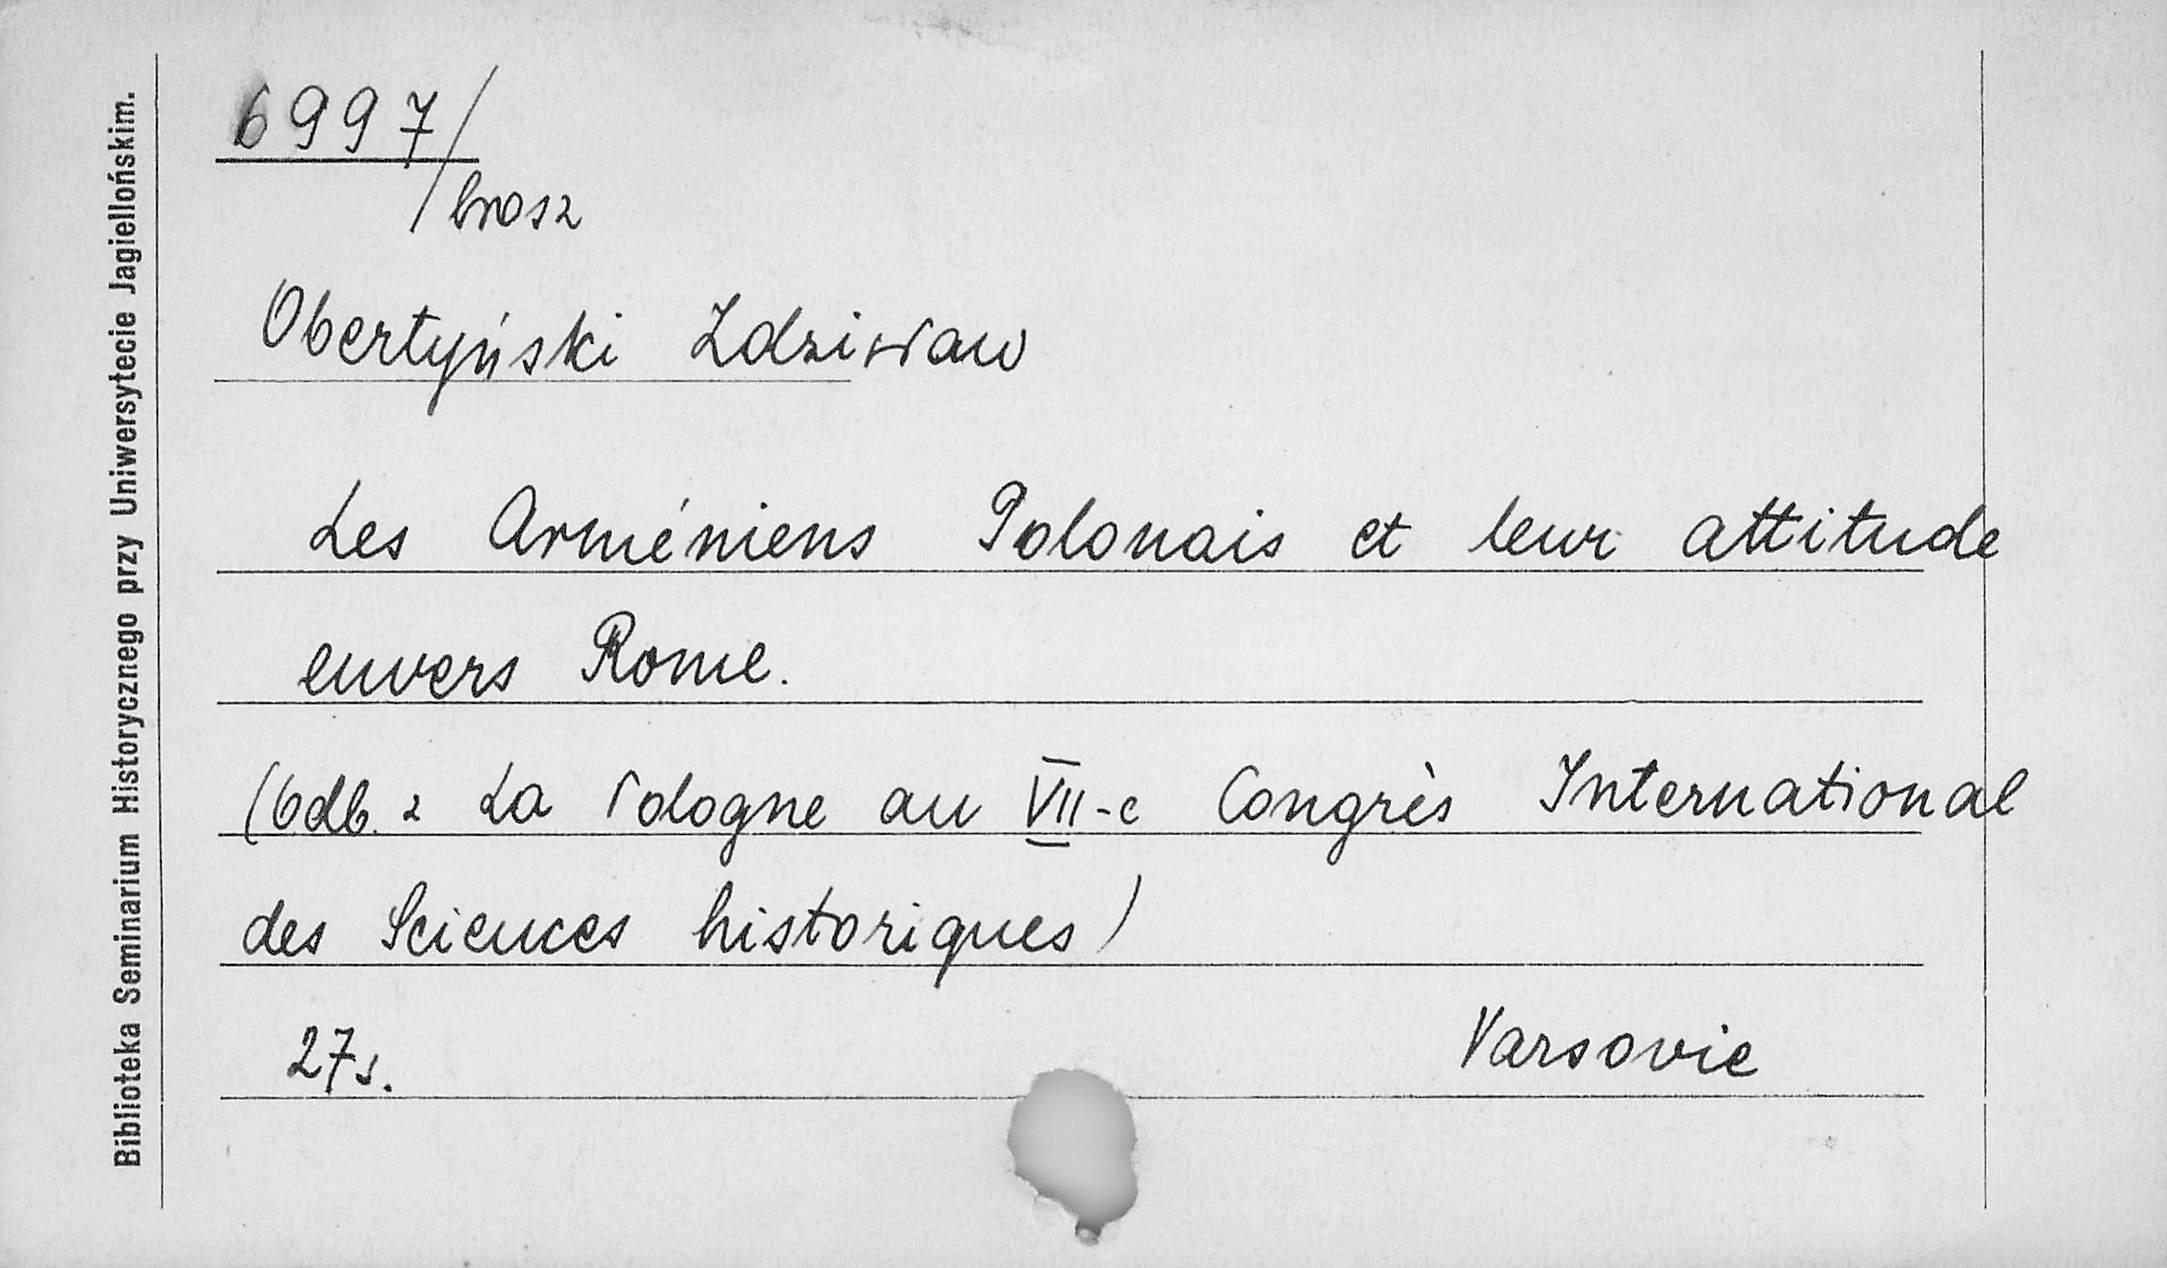 Biblioteka Seminarium Historycznego przy Uniwersytecie Jagiellońskim.
6997/
brosz
Obertyński Zdzisław
Les Arméniens Polonais et leur attitude
envers Rome.
(Odb. z La Pologne au VII-e Congrès International
des Sciences historiques)
27s.
Varsovie